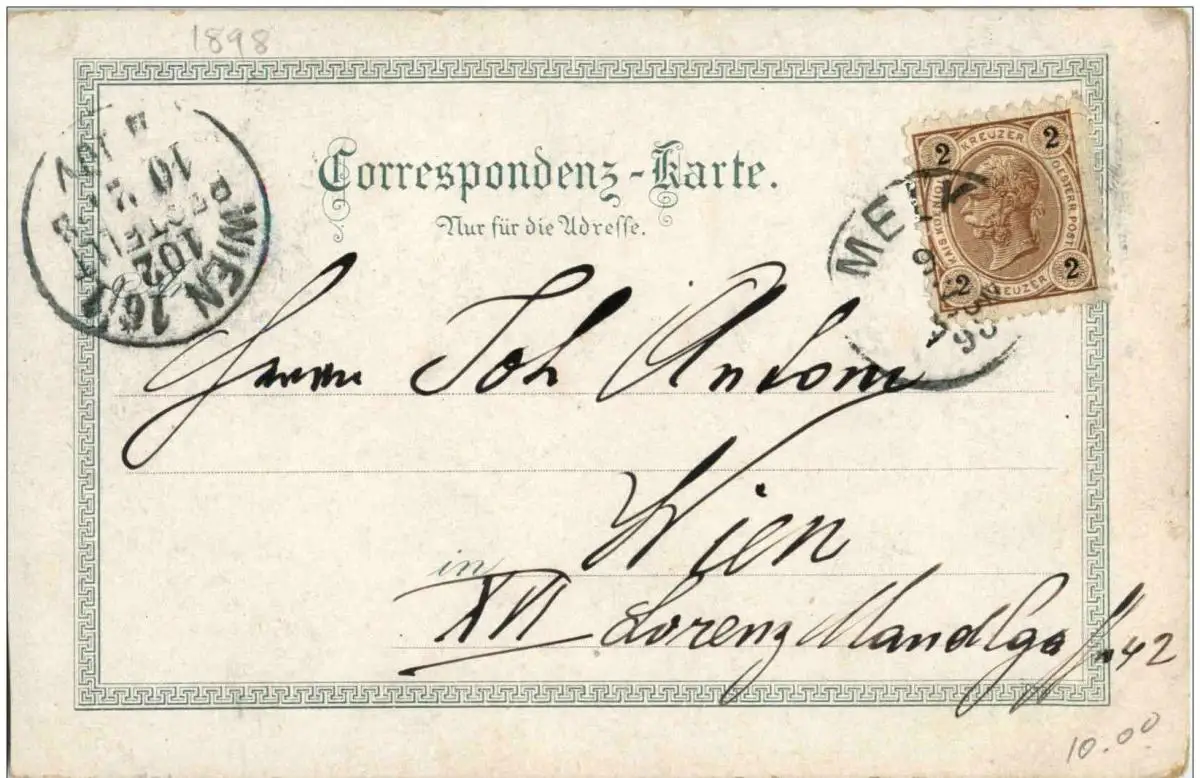 1898
Correspondenz-Karte.
Nur für die Adresse.
2 KREUZER 2
KAIS. KÖNIGL.
OESTERR. POST
2 KREUZER 2
MELK
WIEN
16/1
102
BESTELLT
10 2
Herrn Joh Antoni
Wien
in
XVI Lorenz Mandlgasse 42
10.00